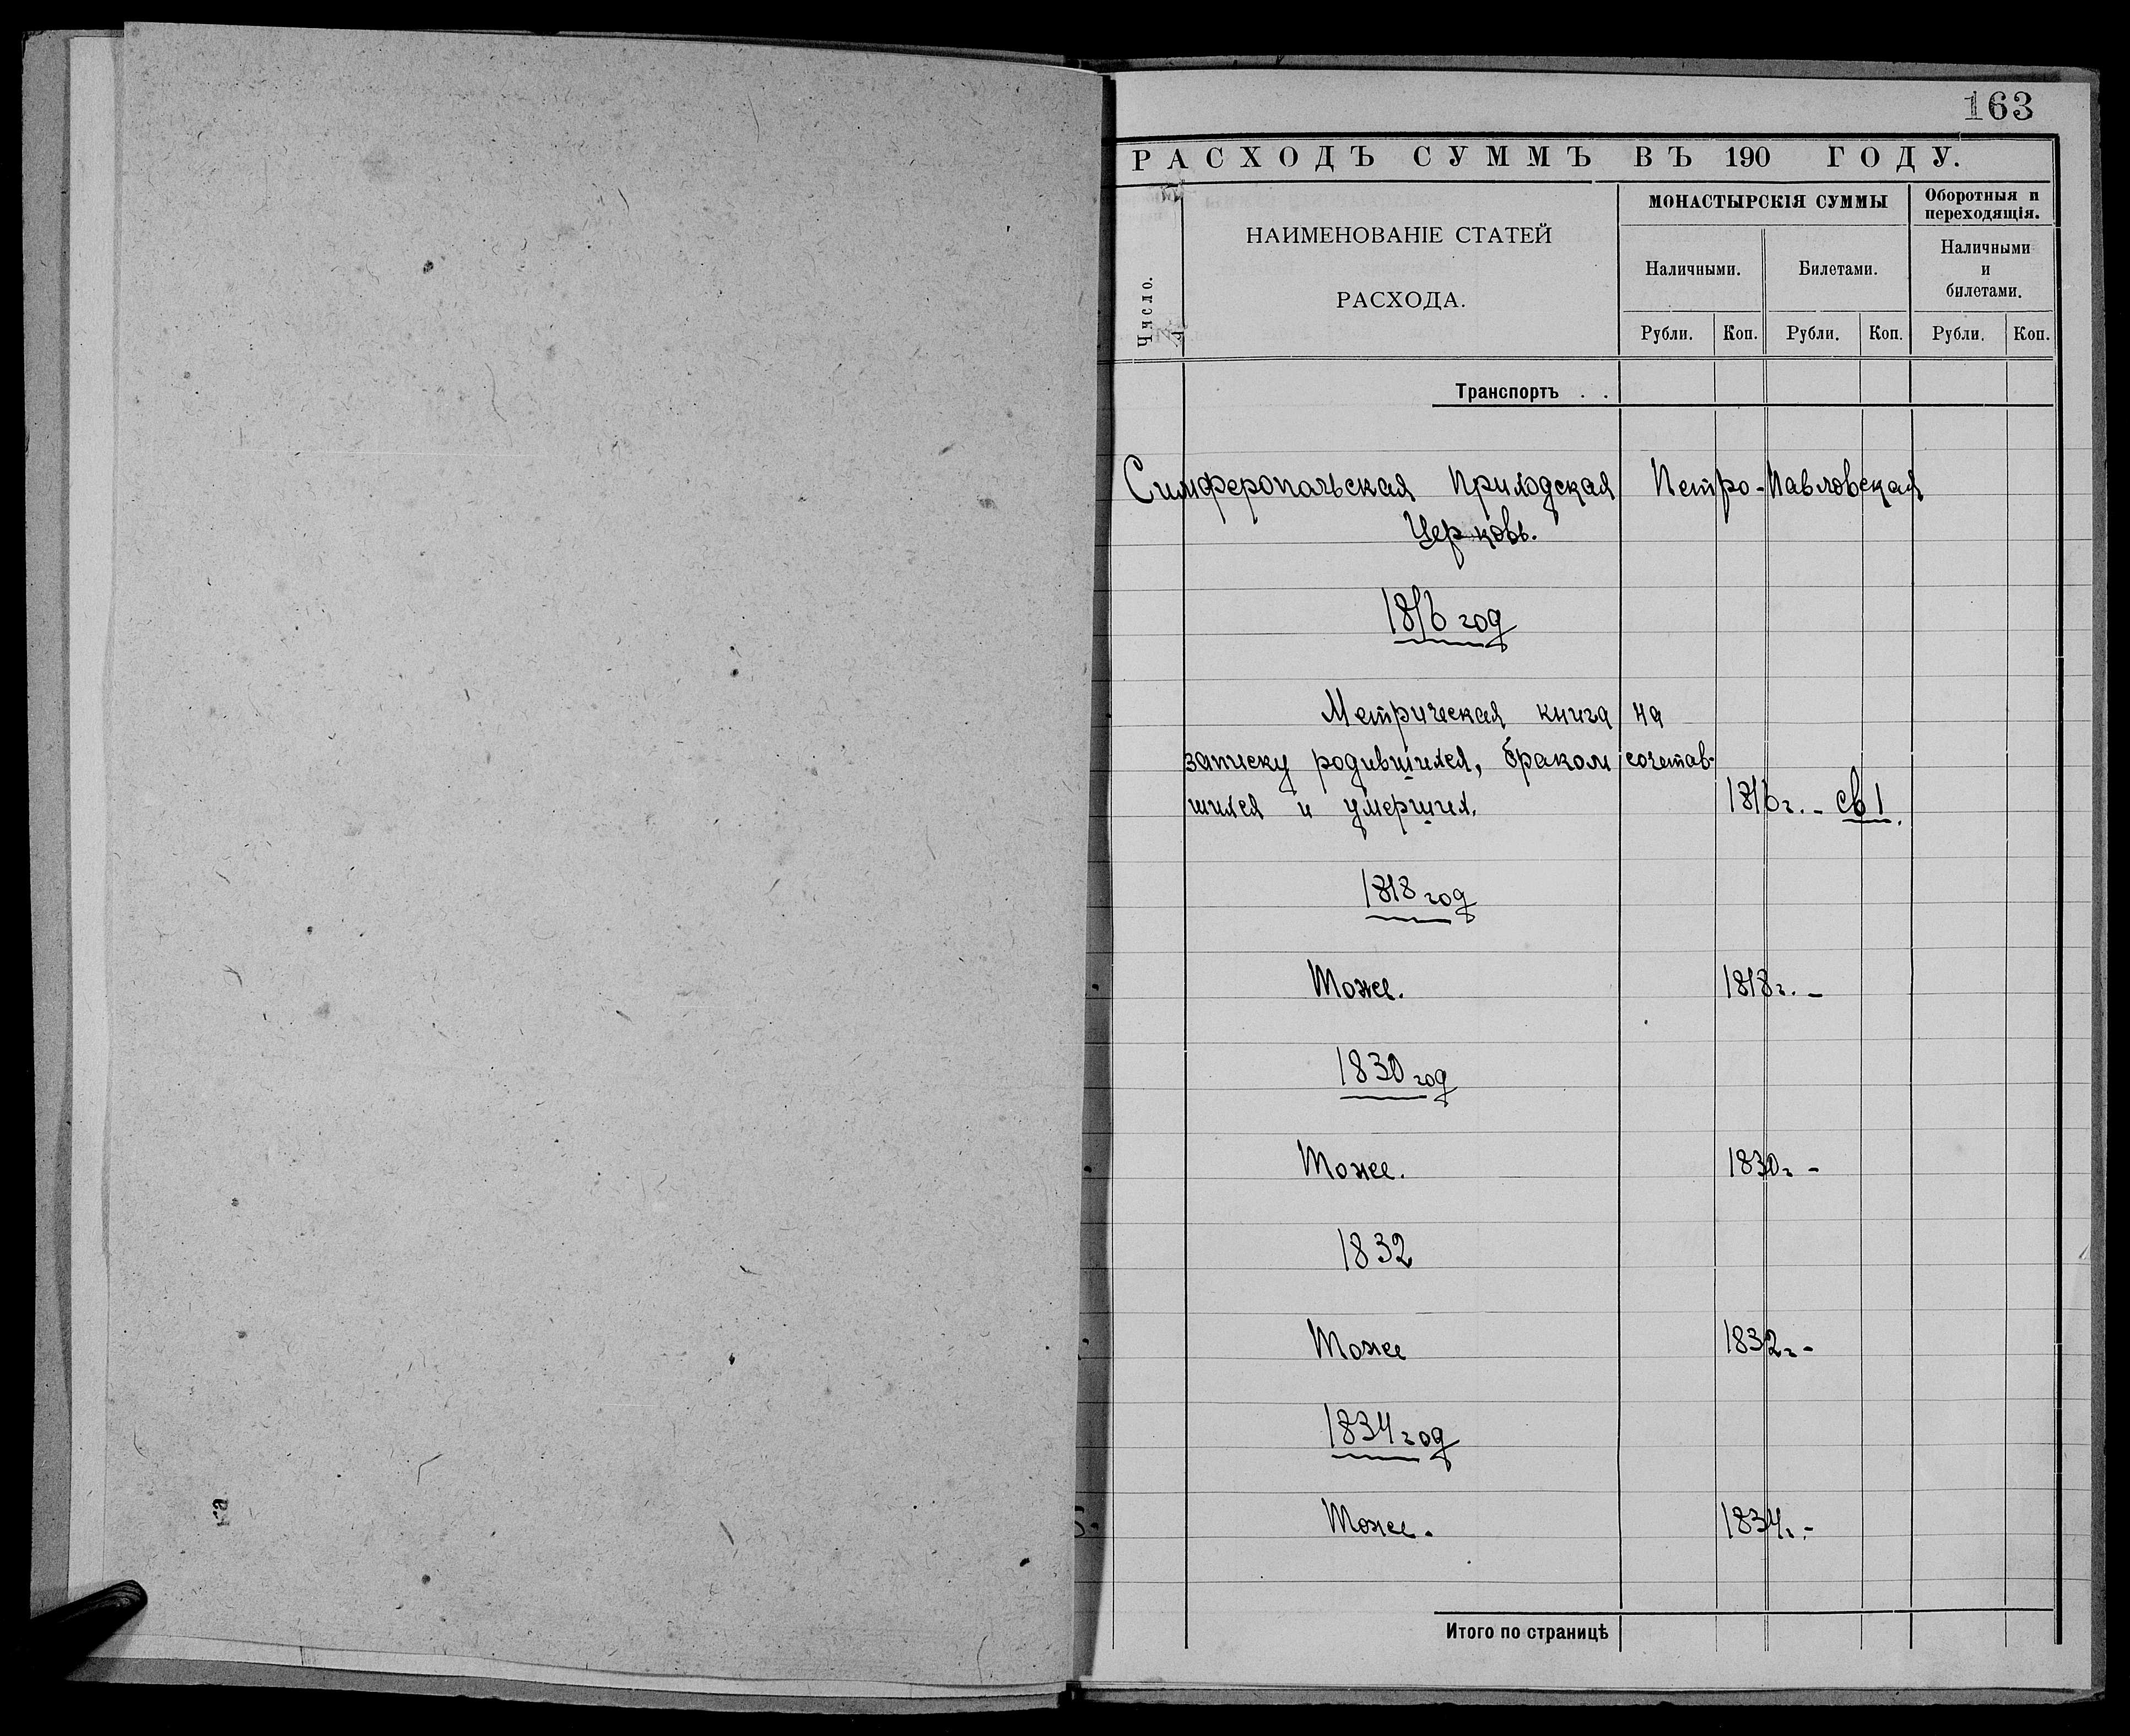 163
РАСХОДЪ СУММЪ ВЪ 190 ГОДУ.
Число.
НАИМЕНОВАНІЕ СТАТЕЙ
РАСХОДА.
МОНАСТЫРСКІЯ СУММЫ
Оборотныя и
переходящія.
Наличными.
Билетами.
Наличными
и
билетами.
Рубли. Коп. Рубли. Коп. Рубли. Коп.
Транспортъ . .
Симферопольская Приходская Петро-Павловская
Церковь.
1816 год
Метрическая книга на
записку родившихся, браком сочетав-
шихся и умерших. 1816г. - св 1.
1818 год
Тоже. 1818г. -
1830 год
Тоже. 1830г. -
1832
Тоже 1832г. -
1834 год
Тоже. 1834г. -
Итого по страницѣ
ка